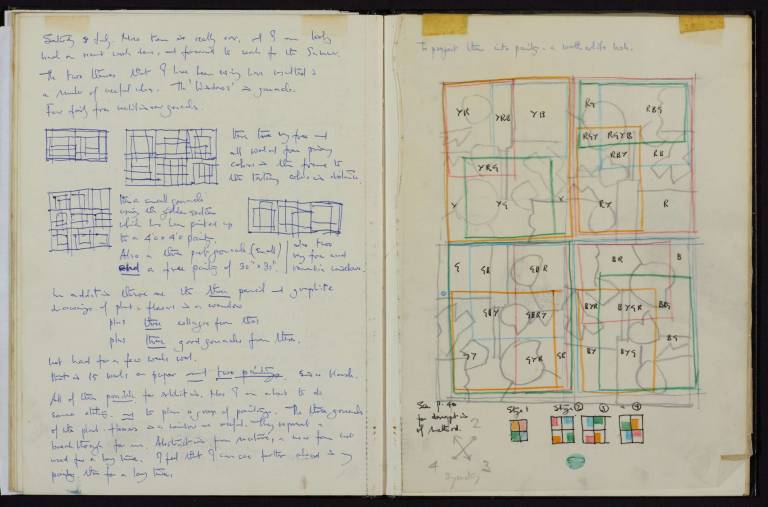 Saturday 8 July. More than is really over, and I am
had a recent work done, and forward to work for the Summer.
The two themes that I have been using have resulted in
a number of useful ideas. The 'Windows' in gouache.
Four fairly free
three very free and
all worked from primary
colours in the frame to
the tertiary colours in distance
three small gouaches
using the golden section
which has been painted up
to a 40 x 40 painting.
Also a three part gouache (small)
and a free painting of 30" x 30".
also two
very free and
In addition there are the three pencil and graphite
drawings of plant & flowers in a window
plus three collages from this
plus three good gouaches from them.
Not bad for a few weeks work.
That is 15 works on paper and two paintings.
All of them possible for exhibition. Now I am about to do
some etching to plan a group of paintings. The three gouaches
of the plant-flowers in a window are useful. They represent a
breakthrough for me. Abstraction from nature, a new form not
used for a long time. I feel that I can see further ahead in my
painting than for a long time.
To project them into painting - a worthwhile task.
YR YRB YB
YRG
Y YG Y
RG RBG
RGY RGYB
RBY RB
RY R
G GB GBR
GBY GBRY
GY GYR GR
BR B
BYR BYGR BRG
BY BYG BG
See P. 40
for description
of method.
Stage 1 Stage 2 3 4
2
4 3